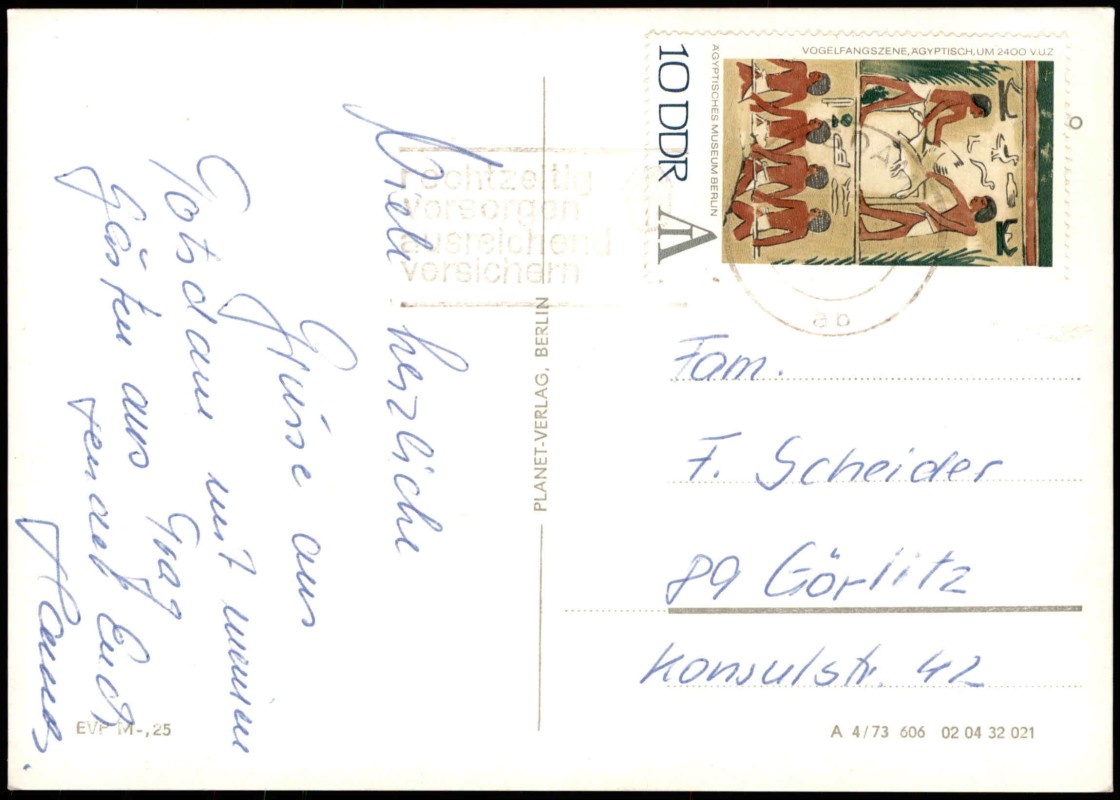 Viele herzliche
Grüsse aus
Potsdam mit meinen
Gästen aus Prag
sendet Euch
Hannes.
rechtzeitig
vorsorgen
ausreichend
versichern
PLANET-VERLAG, BERLIN
VOGELFANGSZENE, ÄGYPTISCH, UM 2400 V.U.Z
ÄGYPTISCHES MUSEUM BERLIN
10 DDR
ab
Fam.
F. Scheider
89 Görlitz
Konsulstr. 42
EVP M-,25
A 4/73 606 02 04 32 021